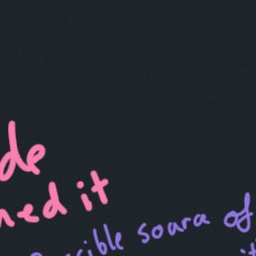 de
ned it
ssible soara of